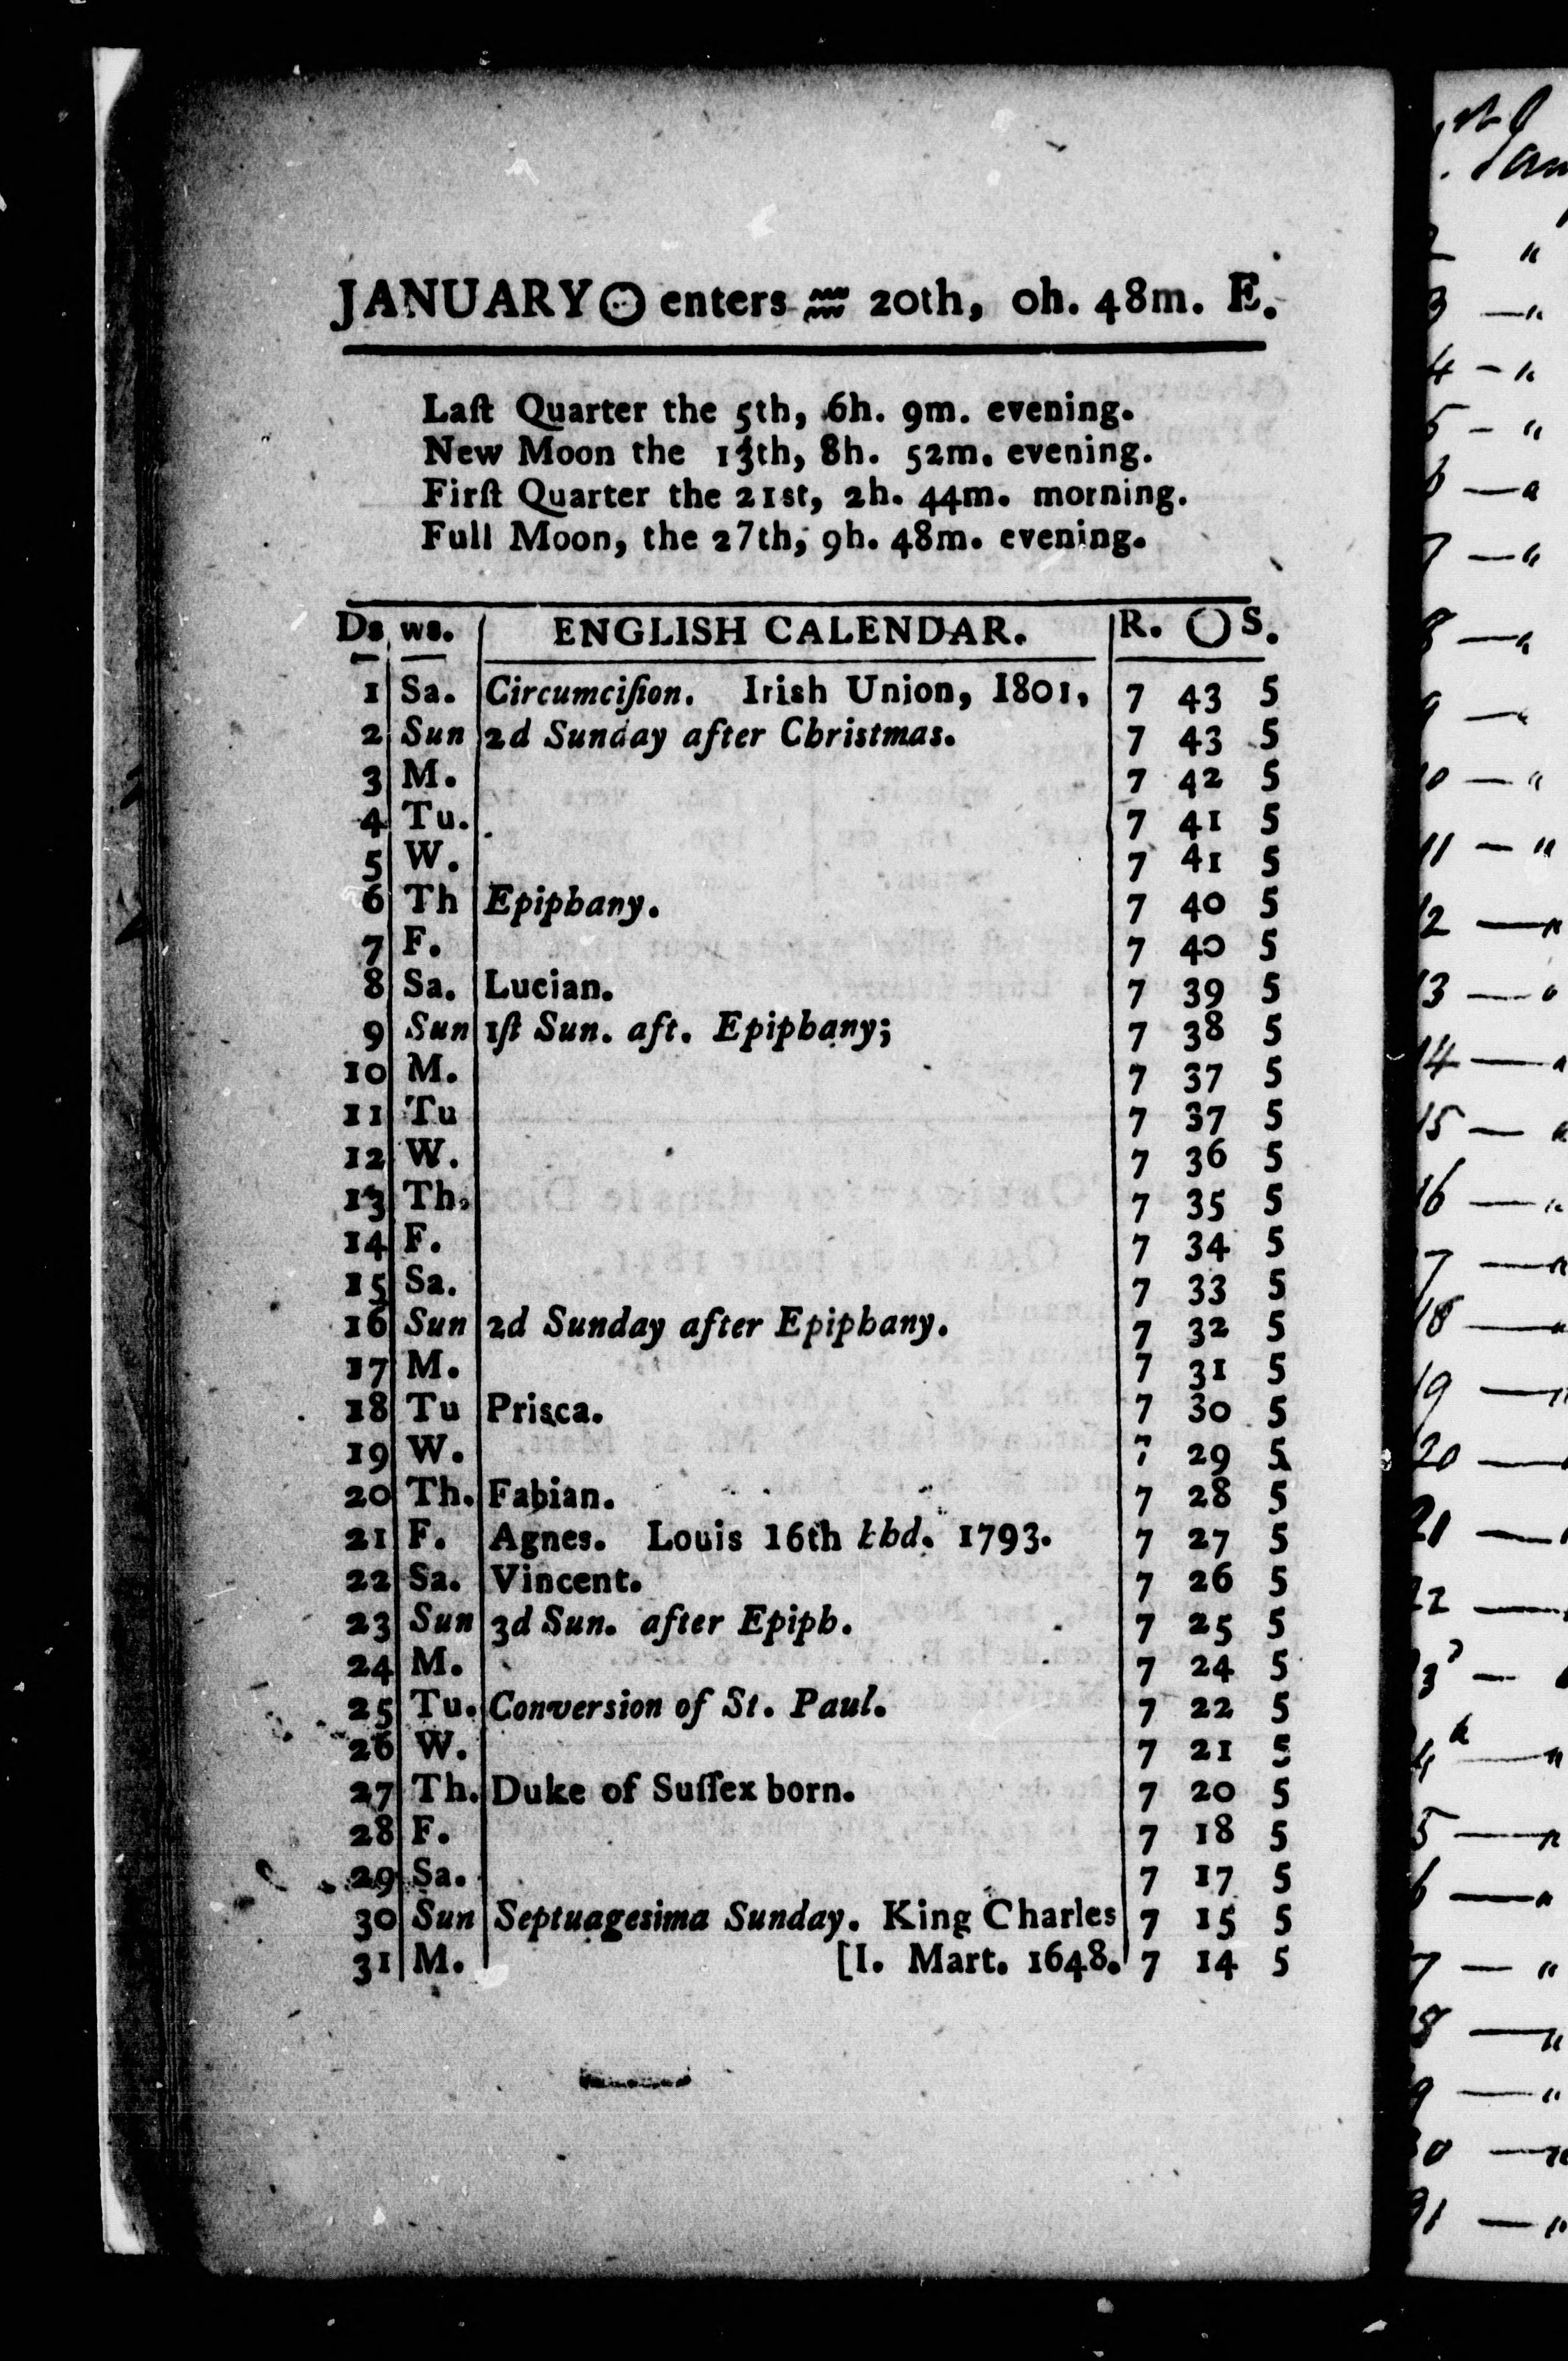 JANUARY☉ enters ♒ 20th, 0h. 48m. E.
Laſt Quarter the 5th, 6h. 9m. evening.
New Moon the 13th, 8h. 52m. evening.
Firſt Quarter the 21st, 2h. 44m. morning.
Full Moon, the 27th, 9h. 48m. evening.
Ds ws. ENGLISH CALENDAR. R. ○ S.
1 Sa. Circumciſion. Irish Union, 1801, 7 43 5
2 Sun 2d Sunday after Christmas. 7 43 5
3 M. 7 42 5
4 Tu. 7 41 5
5 W. 7 41 5
6 Th Epiphany. 7 40 5
7 F. 7 40 5
8 Sa. Lucian. 7 39 5
9 Sun 1ſt Sun. aft. Epiphany; 7 38 5
10 M. 7 37 5
11 Tu 7 37 5
12 W. 7 36 5
13 Th. 7 35 5
14 F. 7 34 5
15 Sa. 7 33 5
16 Sun 2d Sunday after Epiphany. 7 32 5
17 M. 7 31 5
18 Tu Prisca. 7 30 5
19 W. 7 29 5
20 Th. Fabian. 7 28 5
21 F. Agnes. Louis 16th bhd. 1793. 7 27 5
22 Sa. Vincent. 7 26 5
23 Sun 3d Sun. after Epiph. 7 25 5
24 M. 7 24 5
25 Tu. Conversion of St. Paul. 7 22 5
26 W. 7 21 5
27 Th. Duke of Suſſex born. 7 20 5
28 F. 7 18 5
29 Sa. 7 17 5
30 Sun Septuagesima Sunday. King Charles 7 15 5
31 M. [I. Mart. 1648. 7 14 5